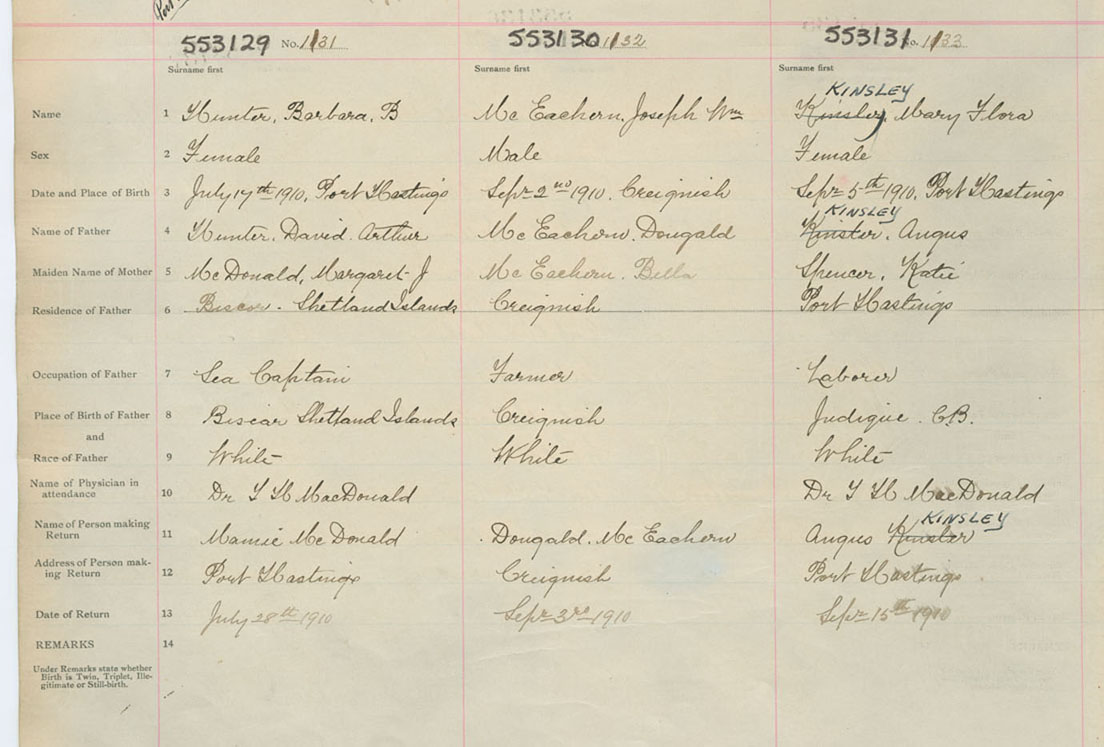 553129 No. 1131 553130 1132 553131 No. 1133
Surname first Surname first Surname first
KINSLEY
Name 1 Hunter, Barbara, B Mc Eachern, Joseph Wm Kinsley, Mary Flora
Sex 2 Female Male Female
Date and Place of Birth 3 July 17th 1910, Port Hastings Sepr 2nd 1910. Creignish Sepr 5th 1910, Port Hastings
KINSLEY
Name of Father 4 Hunter, David. Arthur Mc Eachern, Dougald Kinsler, Angus
Maiden Name of Mother 5 McDonald, Margaret J Mc Eachern. Bella Spencer, Katie
Residence of Father 6 Shetland Islands Creignish Port Hastings
Occupation of Father 7 Sea Captain Farmer Laborer
Place of Birth of Father 8 Shetland Islands Creignish Judique. C.B.
and
Race of Father 9 White White White
Name of Physician in
attendance 10 Dr MacDonald Dr MacDonald
KINSLEY
Name of Person making
Return 11 Mamie Mc Donald Dougald. Mc Eachern Angus Kinsler
Address of Person mak-
ing Return 12 Port Hastings Creignish Port Hastings
Date of Return 13 July 28th 1910 Sepr 3rd 1910 Sepr 15th 1910
REMARKS 14
Under Remarks state whether
Birth is Twin, Triplet, Ille-
gitimate or Still-birth.